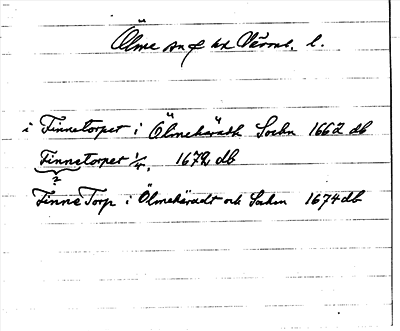 Ölme sn Ölme hd Värml. l.
i Finnetorpet i Ölmehäradh Sochn 1662 db
Finnetorpet 1/4. 1672 db
?
Finne Torp i Ölmehäradt och Sochn 1674 db